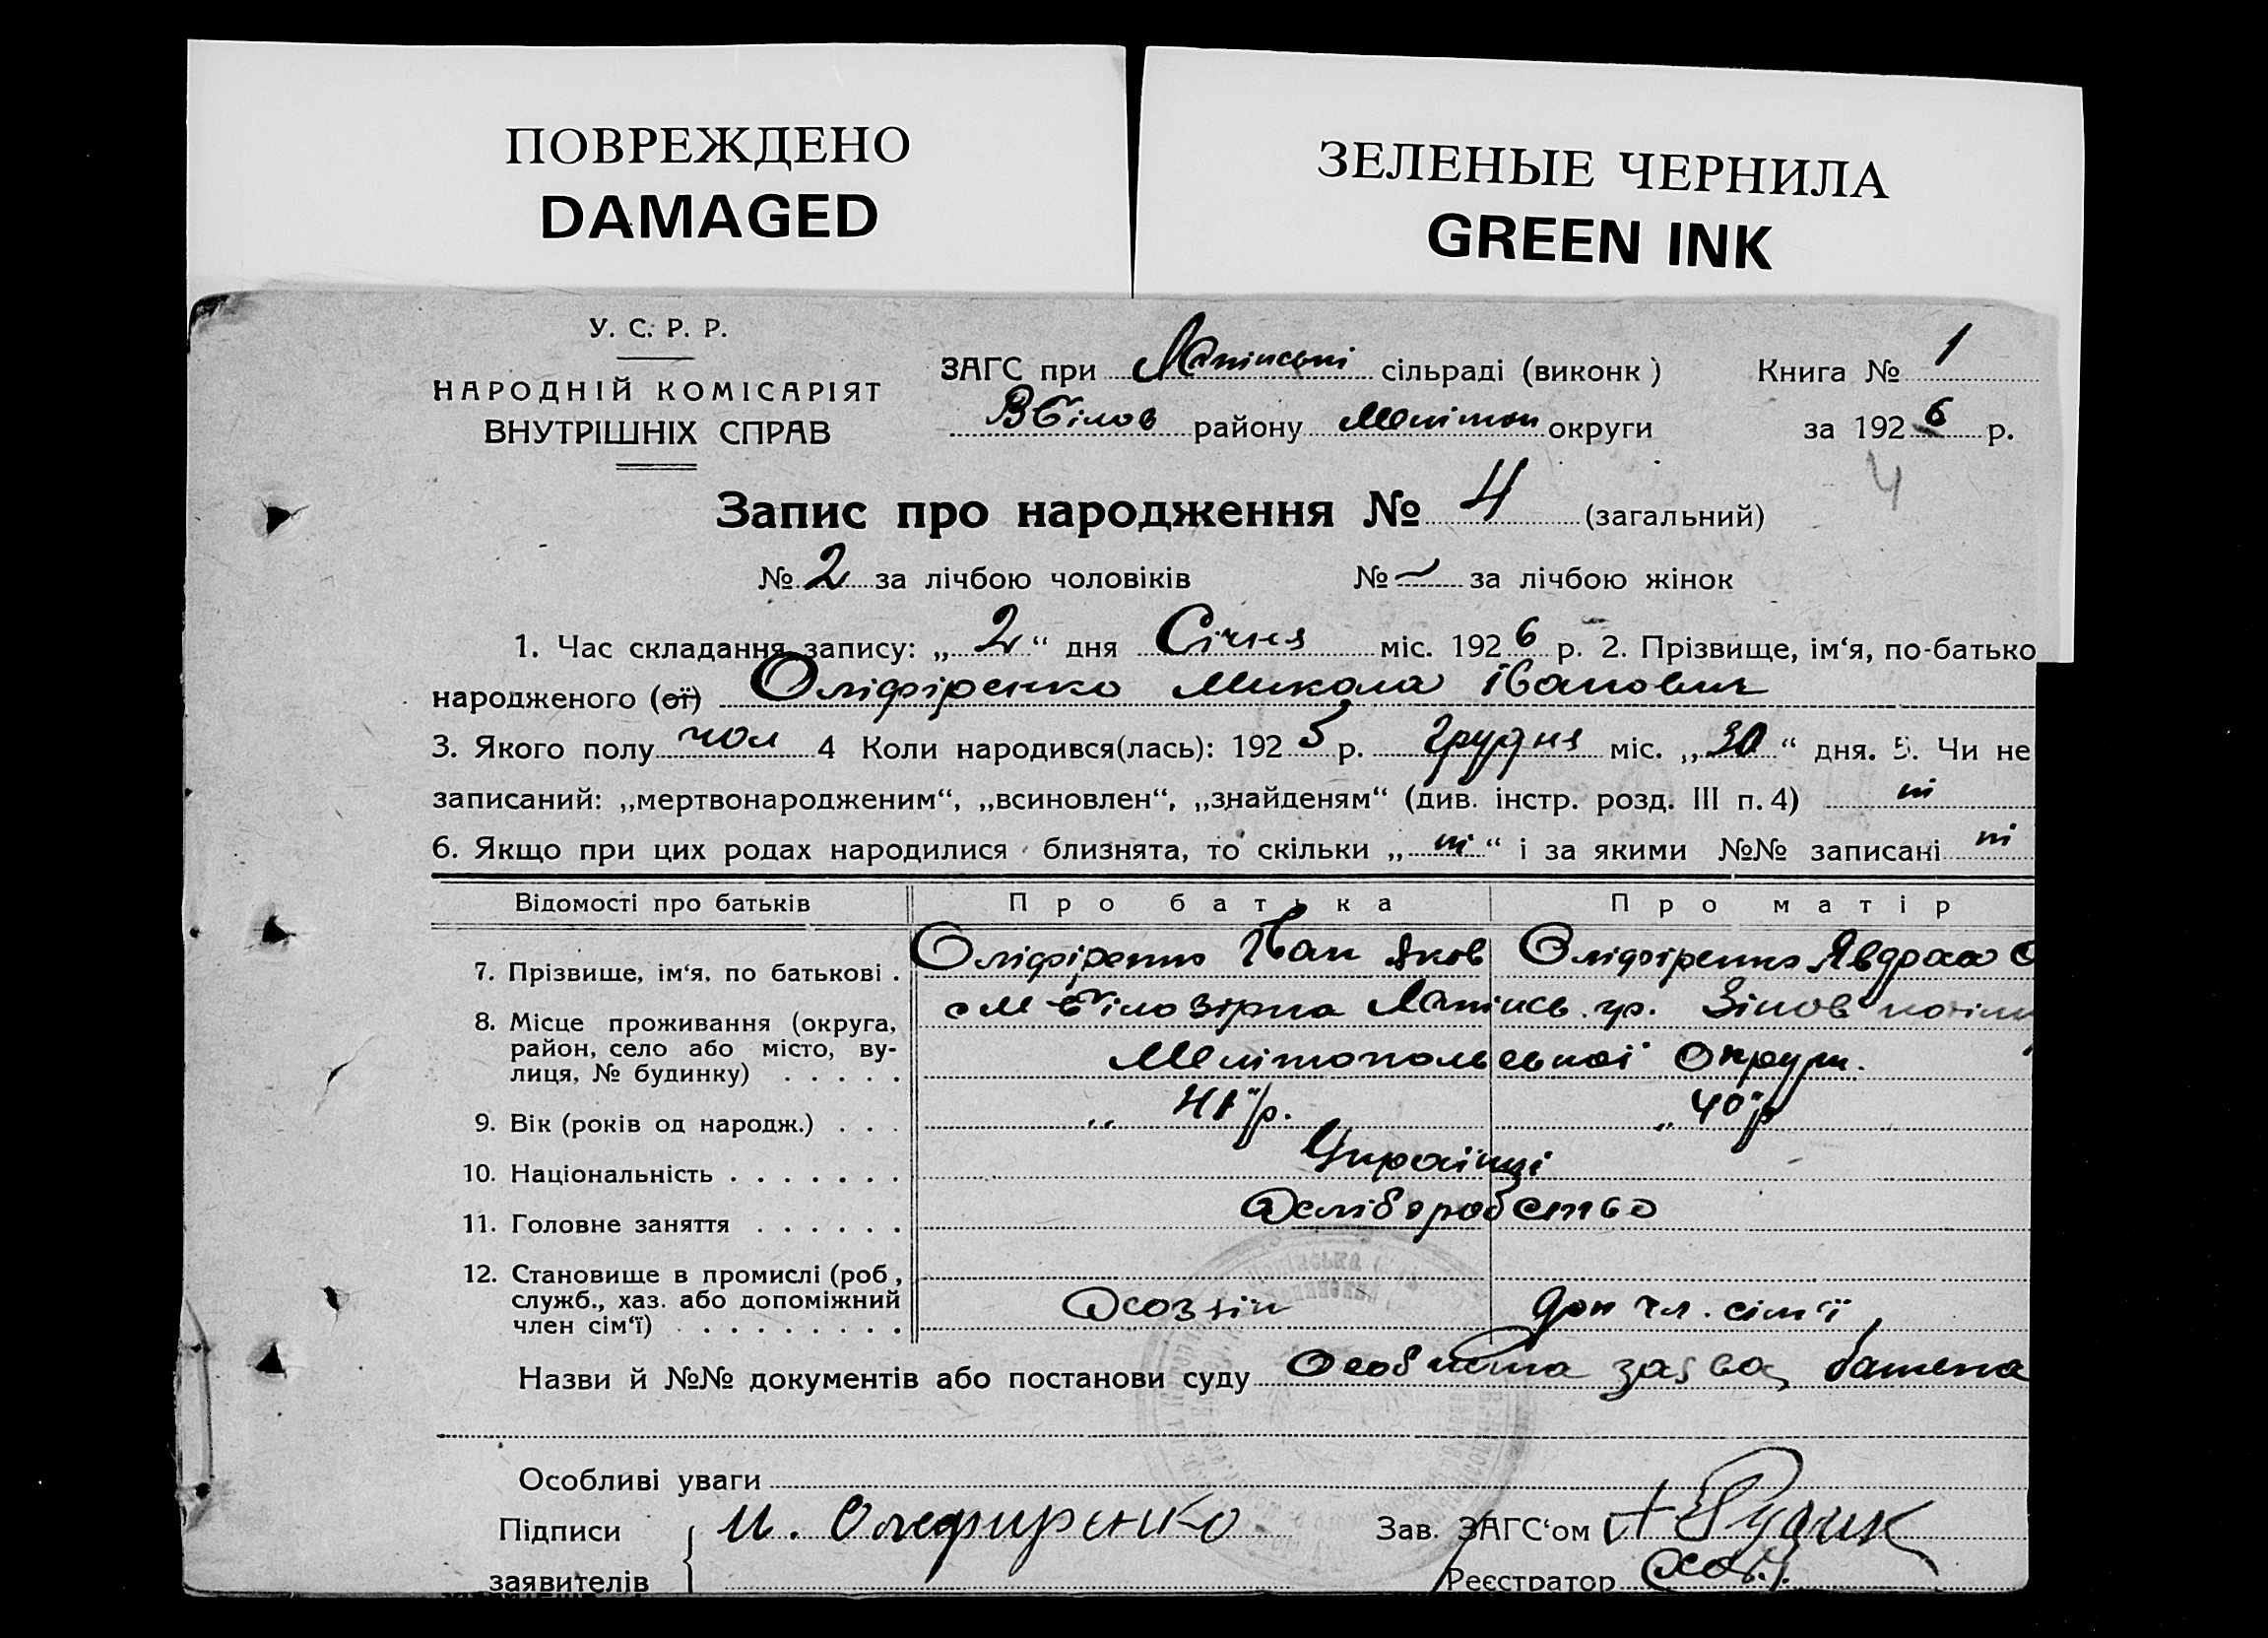 ПОВРЕЖДЕНО
DAMAGED
ЗЕЛЕНЫЕ ЧЕРНИЛА
GREEN INK
У. С. Р. Р.
НАРОДНІЙ КОМІСАРІЯТ
ВНУТРІШНІХ СПРАВ
ЗАГС при сільраді (виконк) Книга № 1
В Білов району Мелітоп округи за 1926 р.
4
Запис про народження № 4 (загальний)
№ 2 за лічбою чоловіків № – за лічбою жінок
1. Час складання запису: „2“ дня Січня міс. 1926 р. 2. Прізвище, ім‘я, по-батько
народженого (ої) Оліфіренко Микола Іванович
3. Якого полу чол 4 Коли народився(лась): 1925 р. Грудня міс. „30“ дня. 5. Чи не
записаний: „мертвонародженим“, „всиновлен“, „знайденям“ (див. інстр. розд. III п. 4) ні
6. Якщо при цих родах народилися близнята, то скільки „ні“ і за якими №№ записані ні
Відомості про батьків Про батька Про матір
7. Прізвище, ім‘я, по батькові . Оліфіренко Іван Яков Оліфіренко Явдоха
8. Місце проживання (округа,
район, село або місто, ву-
лиця, № будинку) . . . . . Мелітопольської Округи.
9. Вік (років од народж.) . . . „ 41 р. „ 40 р
10. Національність . . . . . . . Українці
11. Головне заняття . . . . . . Хліборобство
12. Становище в промислі (роб,
служб., хаз. або допоміжний
член сім‘ї) . . . . . . . . Хозяїн доп чл. сім‘ї
Назви й №№ документів або постанови суду Особиста заява батька
Особливі уваги
Підписи И. Олефиренко Зав. ЗАГС‘ом Рудик
заявителів Реєстратор